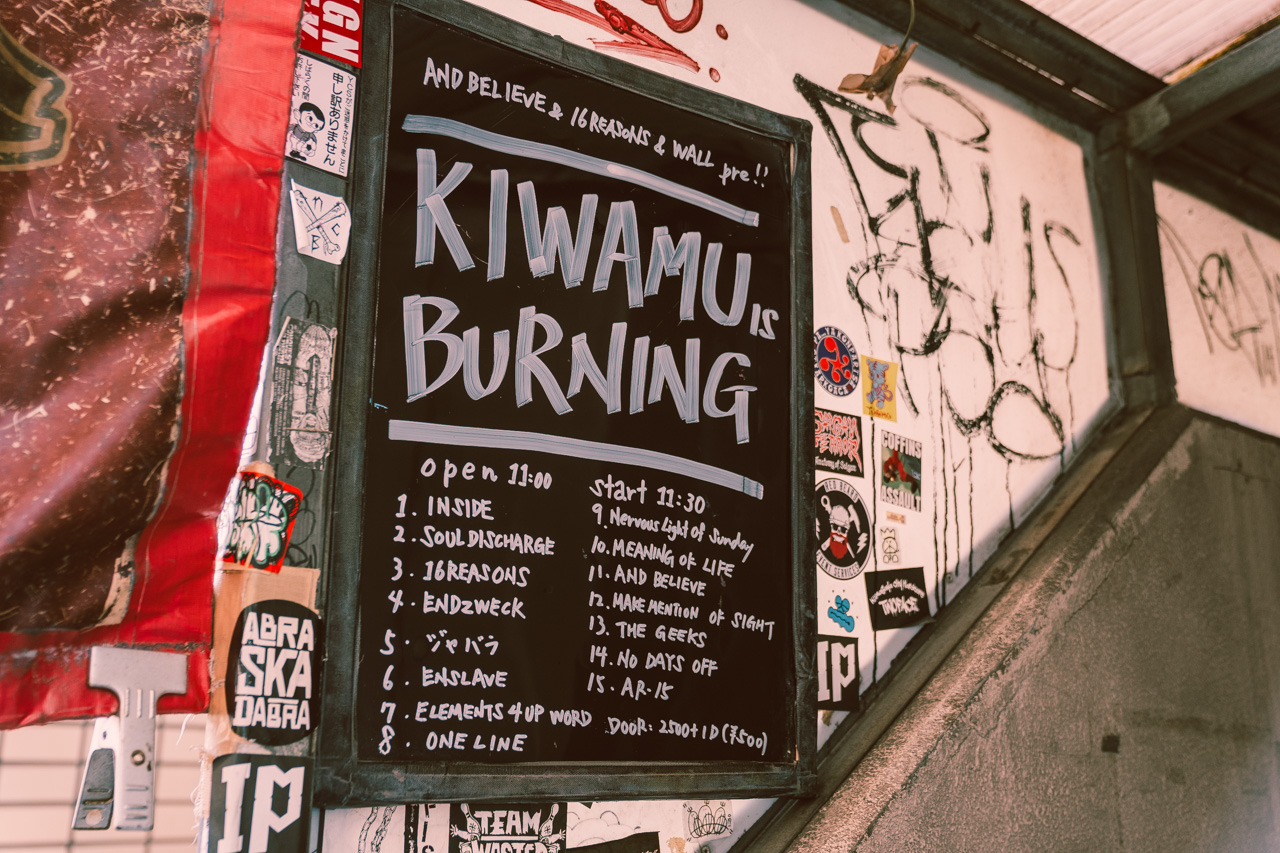 AND BELIEVE & 16REASONS & WALL pre!!
KIWAMU IS
BURNING
open 11:00
start 11:30
1. INSIDE
2. SOUL DISCHARGE
3. 16REASONS
4. ENDZWECK
5. ジャパラ
6. ENSLAVE
7. ELEMENTS 4 UP WORD
8. ONE LINE
9 Nervous Light of Sunday
10. MEANING of LIFE
11. AND BELIEVE
12. MAKE MENTION OF SIGHT
13. THE GEEKS
14. NO DAYS OFF
15. AR-15
DOOR: 2500+1D (¥500)
申し訳ありません
N C
B
ABRA
SKA
DABRA
IP
COFFINS
ASSAULT
RED BEARD
EVENT SERVICES
IP
TEAM
WASTED